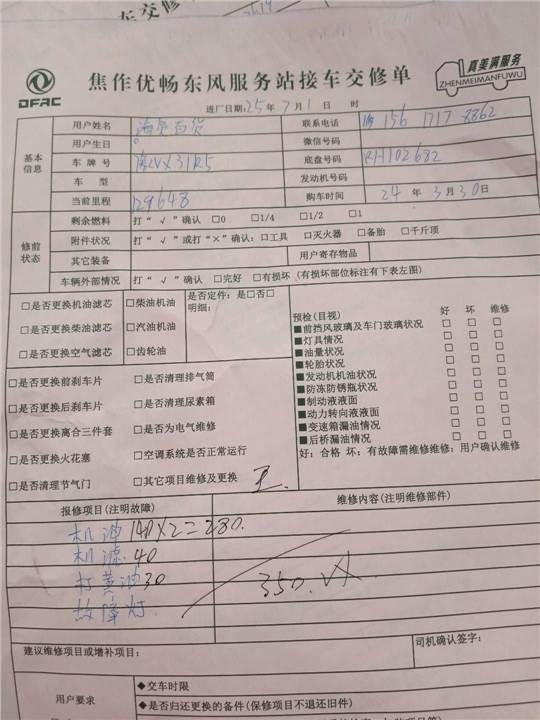 DFAC
焦作优畅东风服务站接车交修单
真美满服务
ZHENMEIMANFUWU
进厂日期:25年7月1日 时
基本信息
用户姓名 联系电话 156 1717 8862
用户生日 微信号码
车牌号 底盘号码 RH102682
车型 发动机号码
当前里程 129648 购车时间 24年3月30日
修前状态
剩余燃料 打“√”确认 □0 □1/4 □1/2 □1
附件状况 打“√”或打“×”确认:□工具 □灭火器 □备胎 □千斤顶
其它装备 用户寄存物品
车辆外部情况 打“√”确认 □完好 □有损坏(有损坏部位标注有下表左图)
□是否更换机油滤芯 □柴油机油 是否定件:是□否□
明细:
□是否更换柴油滤芯 □汽油机油
□是否更换空气滤芯 □齿轮油
□是否更换前刹车片 □是否清理排气筒
□是否更换后刹车片 □是否清理尿素箱
□是否更换离合三件套 □是否为电气维修
□是否更换火花塞 □空调系统是否正常运行
□是否清理节气门 □其它项目维修及更换
预检(目视) 好 坏 维修
■前挡风玻璃及车门玻璃状况 □ □ □
■灯具情况 □ □ □
■油量状况 □ □ □
■轮胎状况 □ □ □
■发动机机油状况 □ □ □
■防冻防锈瓶状况 □ □ □
■制动液液面 □ □ □
■动力转向液液面 □ □ □
■变速箱漏油情况 □ □ □
■后桥漏油情况 □ □ □
好:合格 坏:有故障需维修维修:用户确认维修
报修项目(注明故障) 维修内容(注明维修部件)
机油 140×2=280.
机滤 40
打黄油30
故障灯.
350.
建议维修项目或增补项目: 司机确认签字:
用户要求
◆交车时限
◆是否归还更换的备件(保修项目不退还旧件)